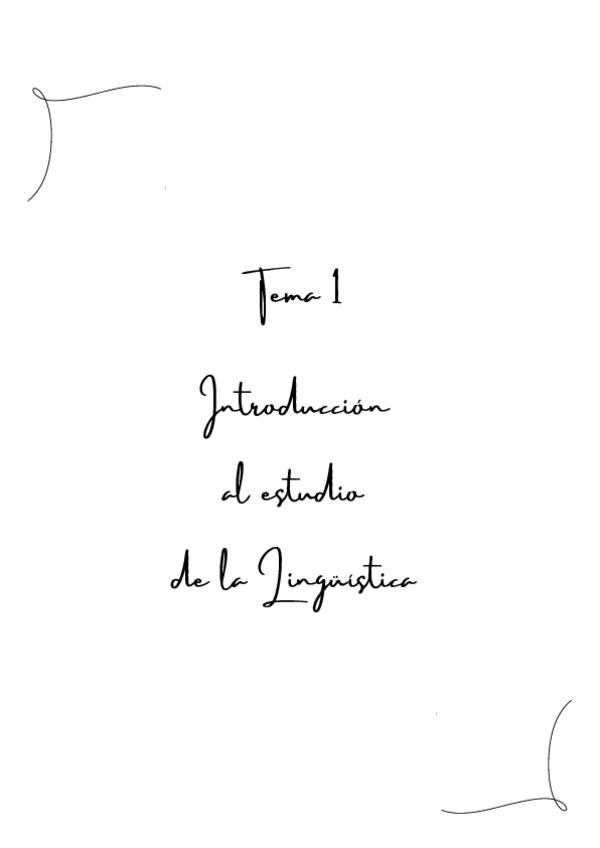 Tema 1
Introducción
al estudio
de la Lingüística